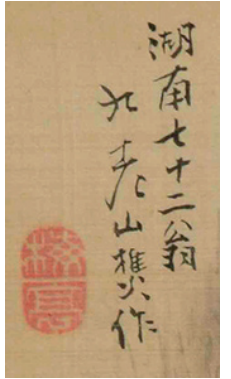 湖南七十二翁
九老山樵作
楳亭